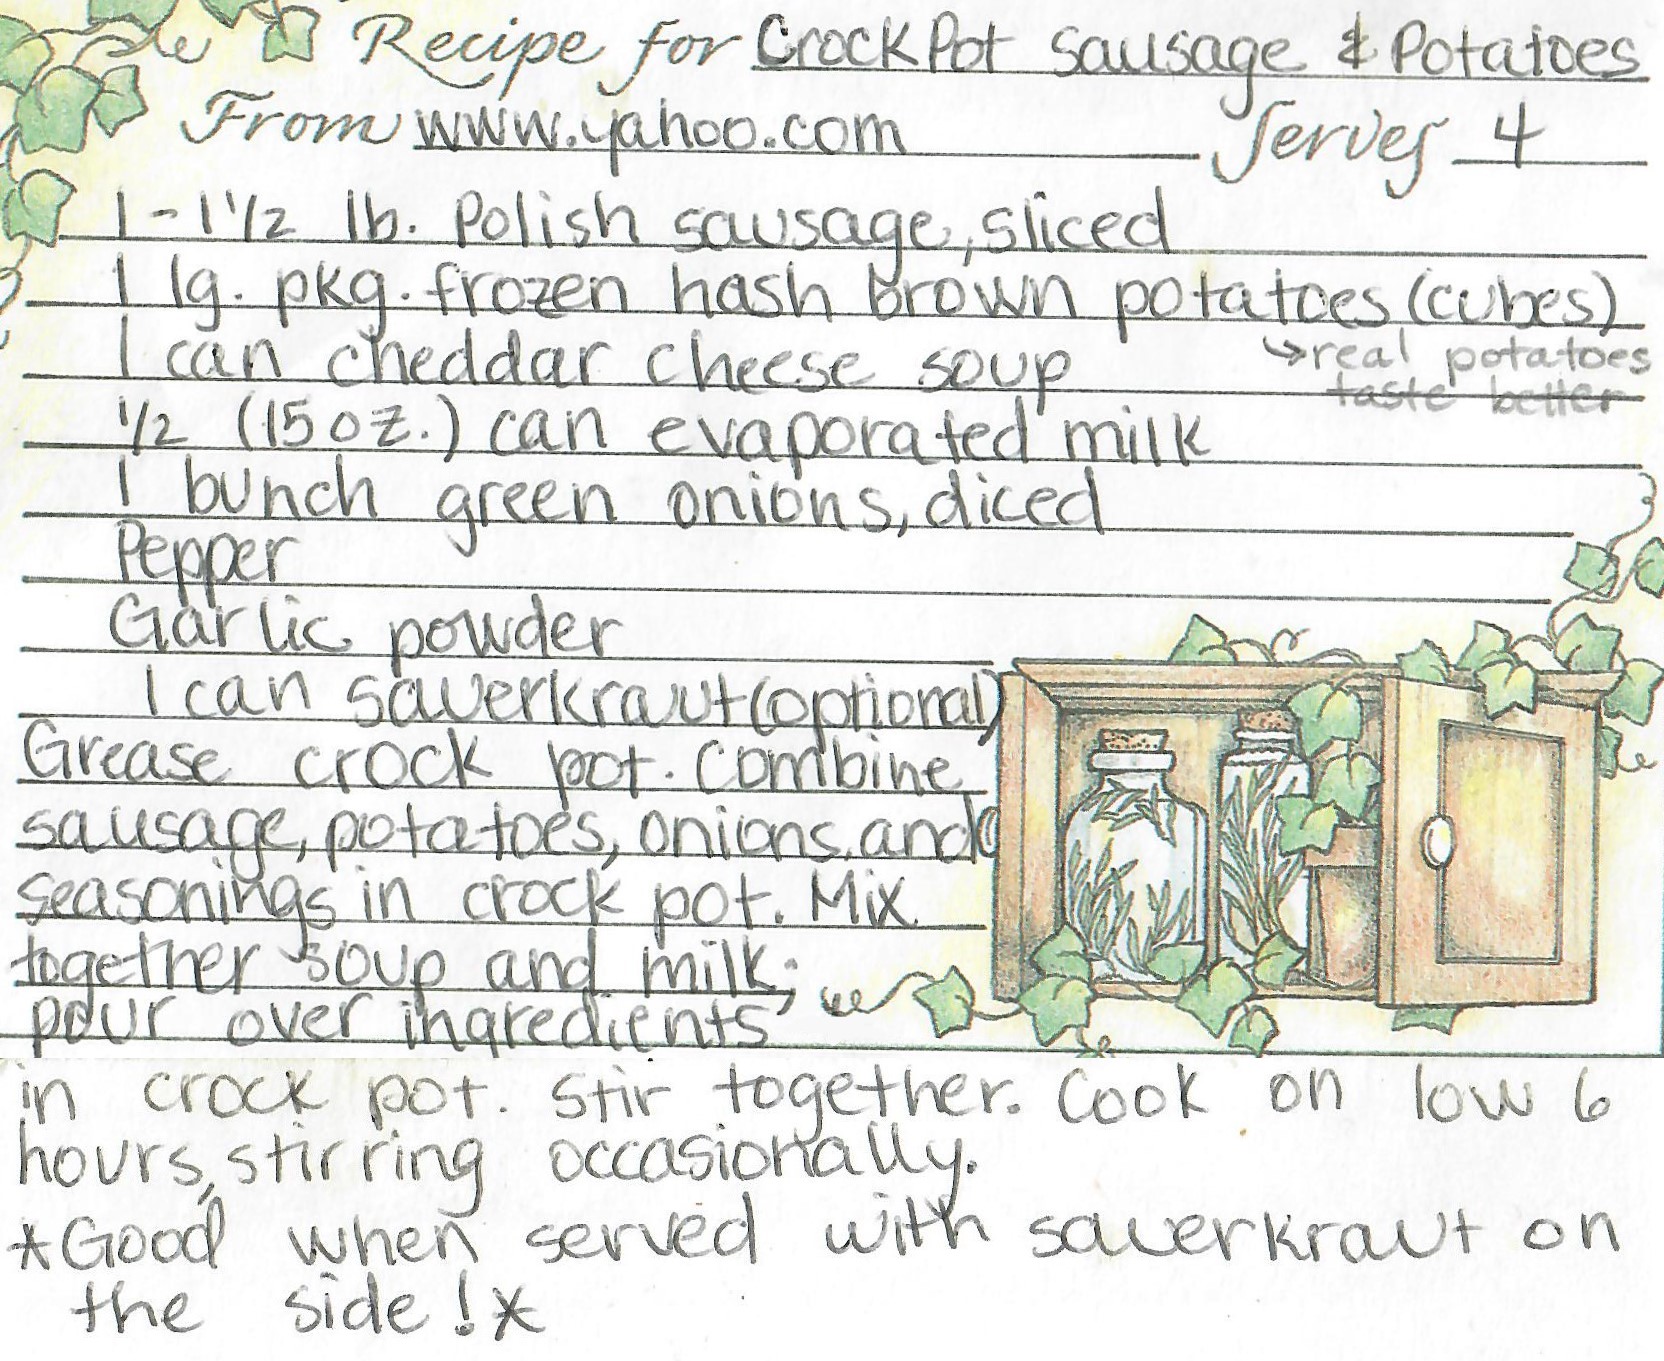 Recipe for CrockPot Sausage & Potatoes
From www.yahoo.com Serves 4
1-1 1/2 lb. Polish sausage, sliced
1 lg. pkg. frozen hash brown potatoes (cubes)
1 can cheddar cheese soup ↳real potatoes
taste better
1/2 (15 oz.) can evaporated milk
1 bunch green onions, diced
Pepper
Garlic powder
1 can sauerkraut (optional)
Grease crock pot. Combine
sausage, potatoes, onions, and
seasonings in crock pot. Mix
together soup and milk;
pour over ingredients
in crock pot. Stir together. Cook on low 6
hours, stirring occasionally.
*Good when served with sauerkraut on
the side!*